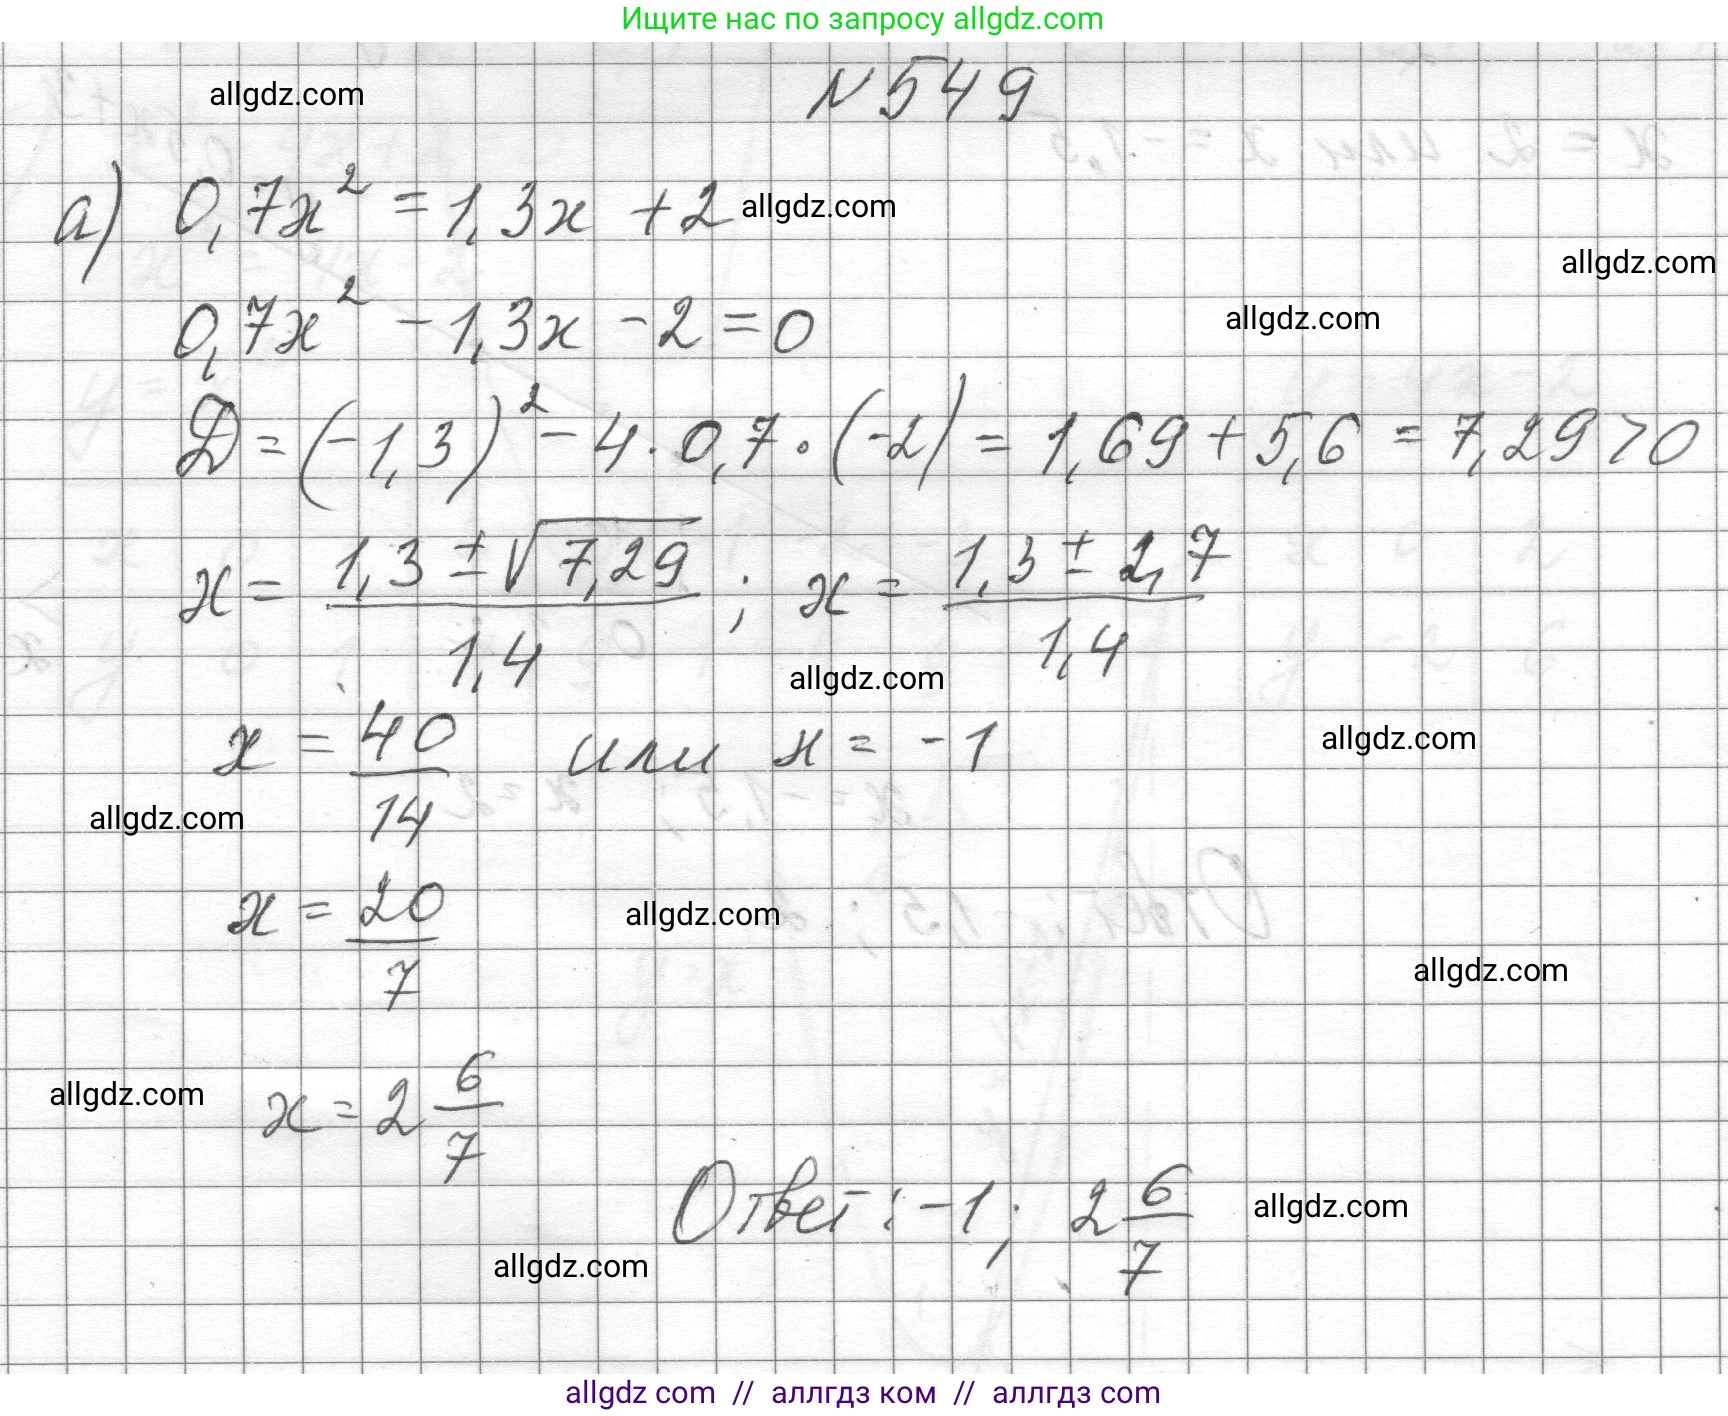 Ищите нас по запросу allgdz.com
N 549
allgdz.com
а) 0,7x² = 1,3x + 2
allgdz.com
allgdz.com
0,7x² - 1,3x - 2 = 0
allgdz.com
D = (-1,3)² - 4 · 0,7 · (-2) = 1,69 + 5,6 = 7,29 > 0
x = (1,3 ± √7,29)/1,4 ; x = (1,3 ± 2,7)/1,4
allgdz.com
x = 40/14 или x = -1
allgdz.com
allgdz.com
x = 20/7
allgdz.com
allgdz.com
x = 2 6/7
allgdz.com
Ответ: -1; 2 6/7
allgdz.com
allgdz.com
allgdz com // аллгдз ком // аллгдз com